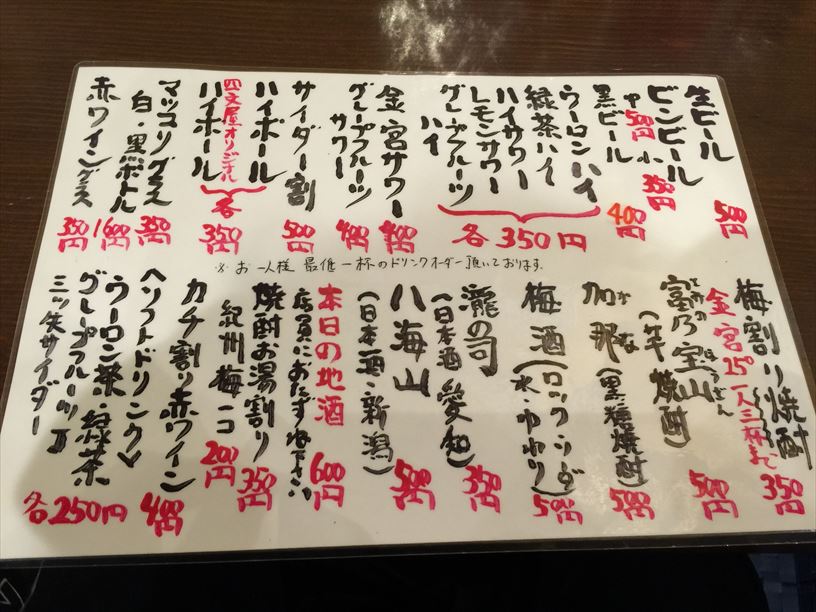 生ビール 500円
ビンビール
中 500円 小 350円
黒ビール 400円
ウーロンハイ
緑茶ハイ
ハイサワー
レモンサワー
グレープフルーツハイ
各350円
金宮サワー 400円
グレープフルーツサワー 400円
サイダー割 500円
ハイボール
四文屋オリジナル
ハイボール
各350円
マッコリグラス 350円
白・黒ボトル 1600円
赤ワイングラス 350円
※お一人様 最低一杯のドリンクオーダー頂いております。
梅割り焼酎 350円
金宮25° 一人三杯まで
富乃宝山 500円
(芋焼酎)
かな
加那(黒糖焼酎) 500円
梅酒(ロック・ソーダ 水・お湯わり) 500円
瀧の司 350円
(日本酒・愛知)
八海山 500円
(日本酒・新潟)
本日の地酒 600円
店員におたずね下さい
焼酎お湯割り 350円
紀州梅一コ 200円
カチ割り赤ワイン 400円
〈ソフトドリンク〉
ウーロン茶・緑茶
グレープフルーツJ
三ツ矢サイダー
各250円